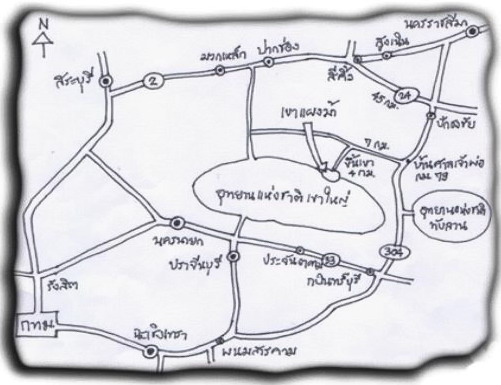 N
นครราชสีมา
สูงเนิน
ปากช่อง
มวกเหล็ก
สีคิ้ว
สระบุรี
2
24
45 กม.
เขาแผงม้า
ปักธงชัย
7 กม.
ขึ้นเขา
4 กม.
บ้านศาลเจ้าพ่อ
กม. 79
อุทยานแห่งชาติ เขาใหญ่
อุทยานแห่งชาติ
ทับลาน
นครนายก
ปราจีนบุรี
ประจันตคาม
33
304
กบินทร์บุรี
รังสิต
กทม
ฉะเชิงเทรา
พนมสารคาม